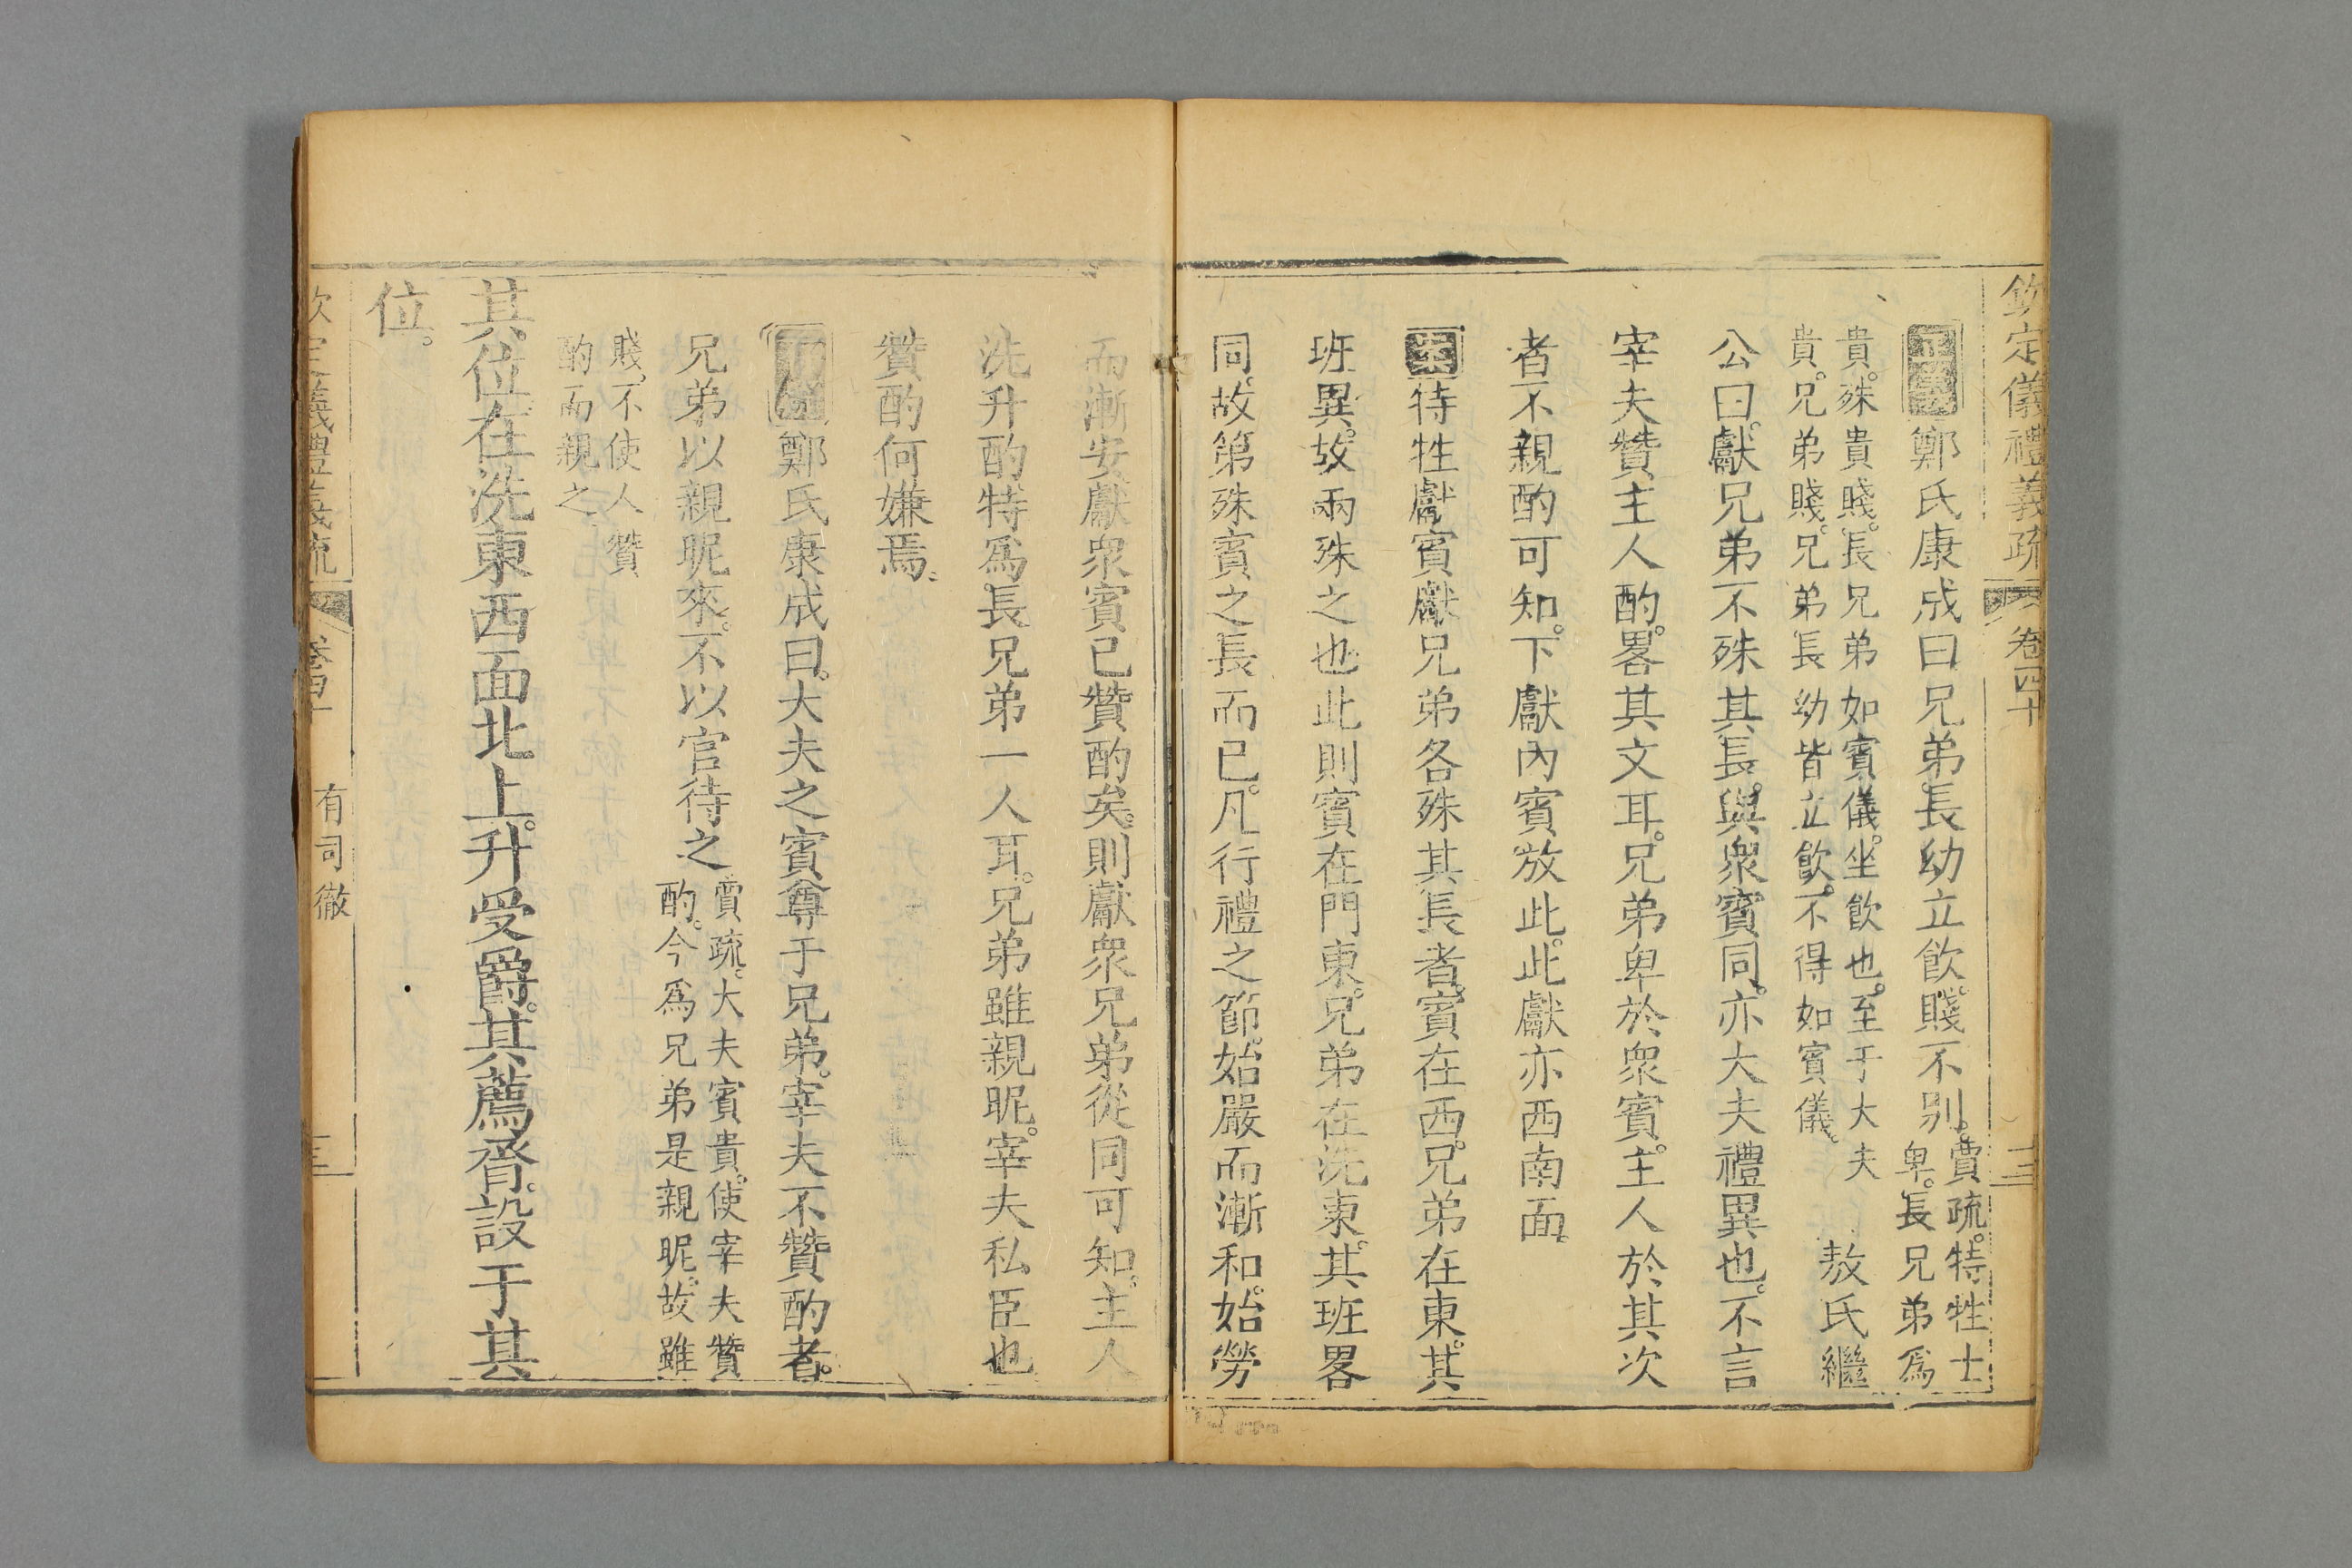 欽定儀禮義疏
卷四十
三
正義鄭氏康成曰兄弟長幼立飲。賤不别。賈疏。特牲士
卑。長兄弟爲
貴。殊貴賤。長兄弟如賓儀。坐飲也。至于大夫
貴。兄弟賤。兄弟長幼皆立飲。不得如賓儀。
敖氏繼
公曰。獻兄弟不殊其長。與衆賓同。亦大夫禮異也。不言
宰夫贊主人酌。畧其文耳。兄弟卑於衆賓。主人於其次
者不親酌可知。下獻內賓放此。此獻亦西南面。
案特牲獻賓獻兄弟各殊其長者。賓在西。兄弟在東。其
班異。故兩殊之也。此則賓在門東。兄弟在洗東。其班畧
同。故第殊賓之長而已。凡行禮之節。始嚴而漸和。始勞
而漸安獻衆賓已贊酌矣。則獻衆兄弟從同可知。主人
洗升酌特爲長兄弟一人耳。兄弟雖親昵。宰夫私臣也
贊酌何嫌焉。
鄭氏康成曰。大夫之賓尊于兄弟。宰夫不贊酌者。
兄弟以親昵來。不以官待之賈疏。大夫賓貴。使宰夫贊
酌。今爲兄弟是親昵。故雖
賤。不使人贊
酌而親之。
其位在洗東西面北上。升受爵。其薦脀。設于其
位。
欽定儀禮義疏
卷四十
有司徹
三